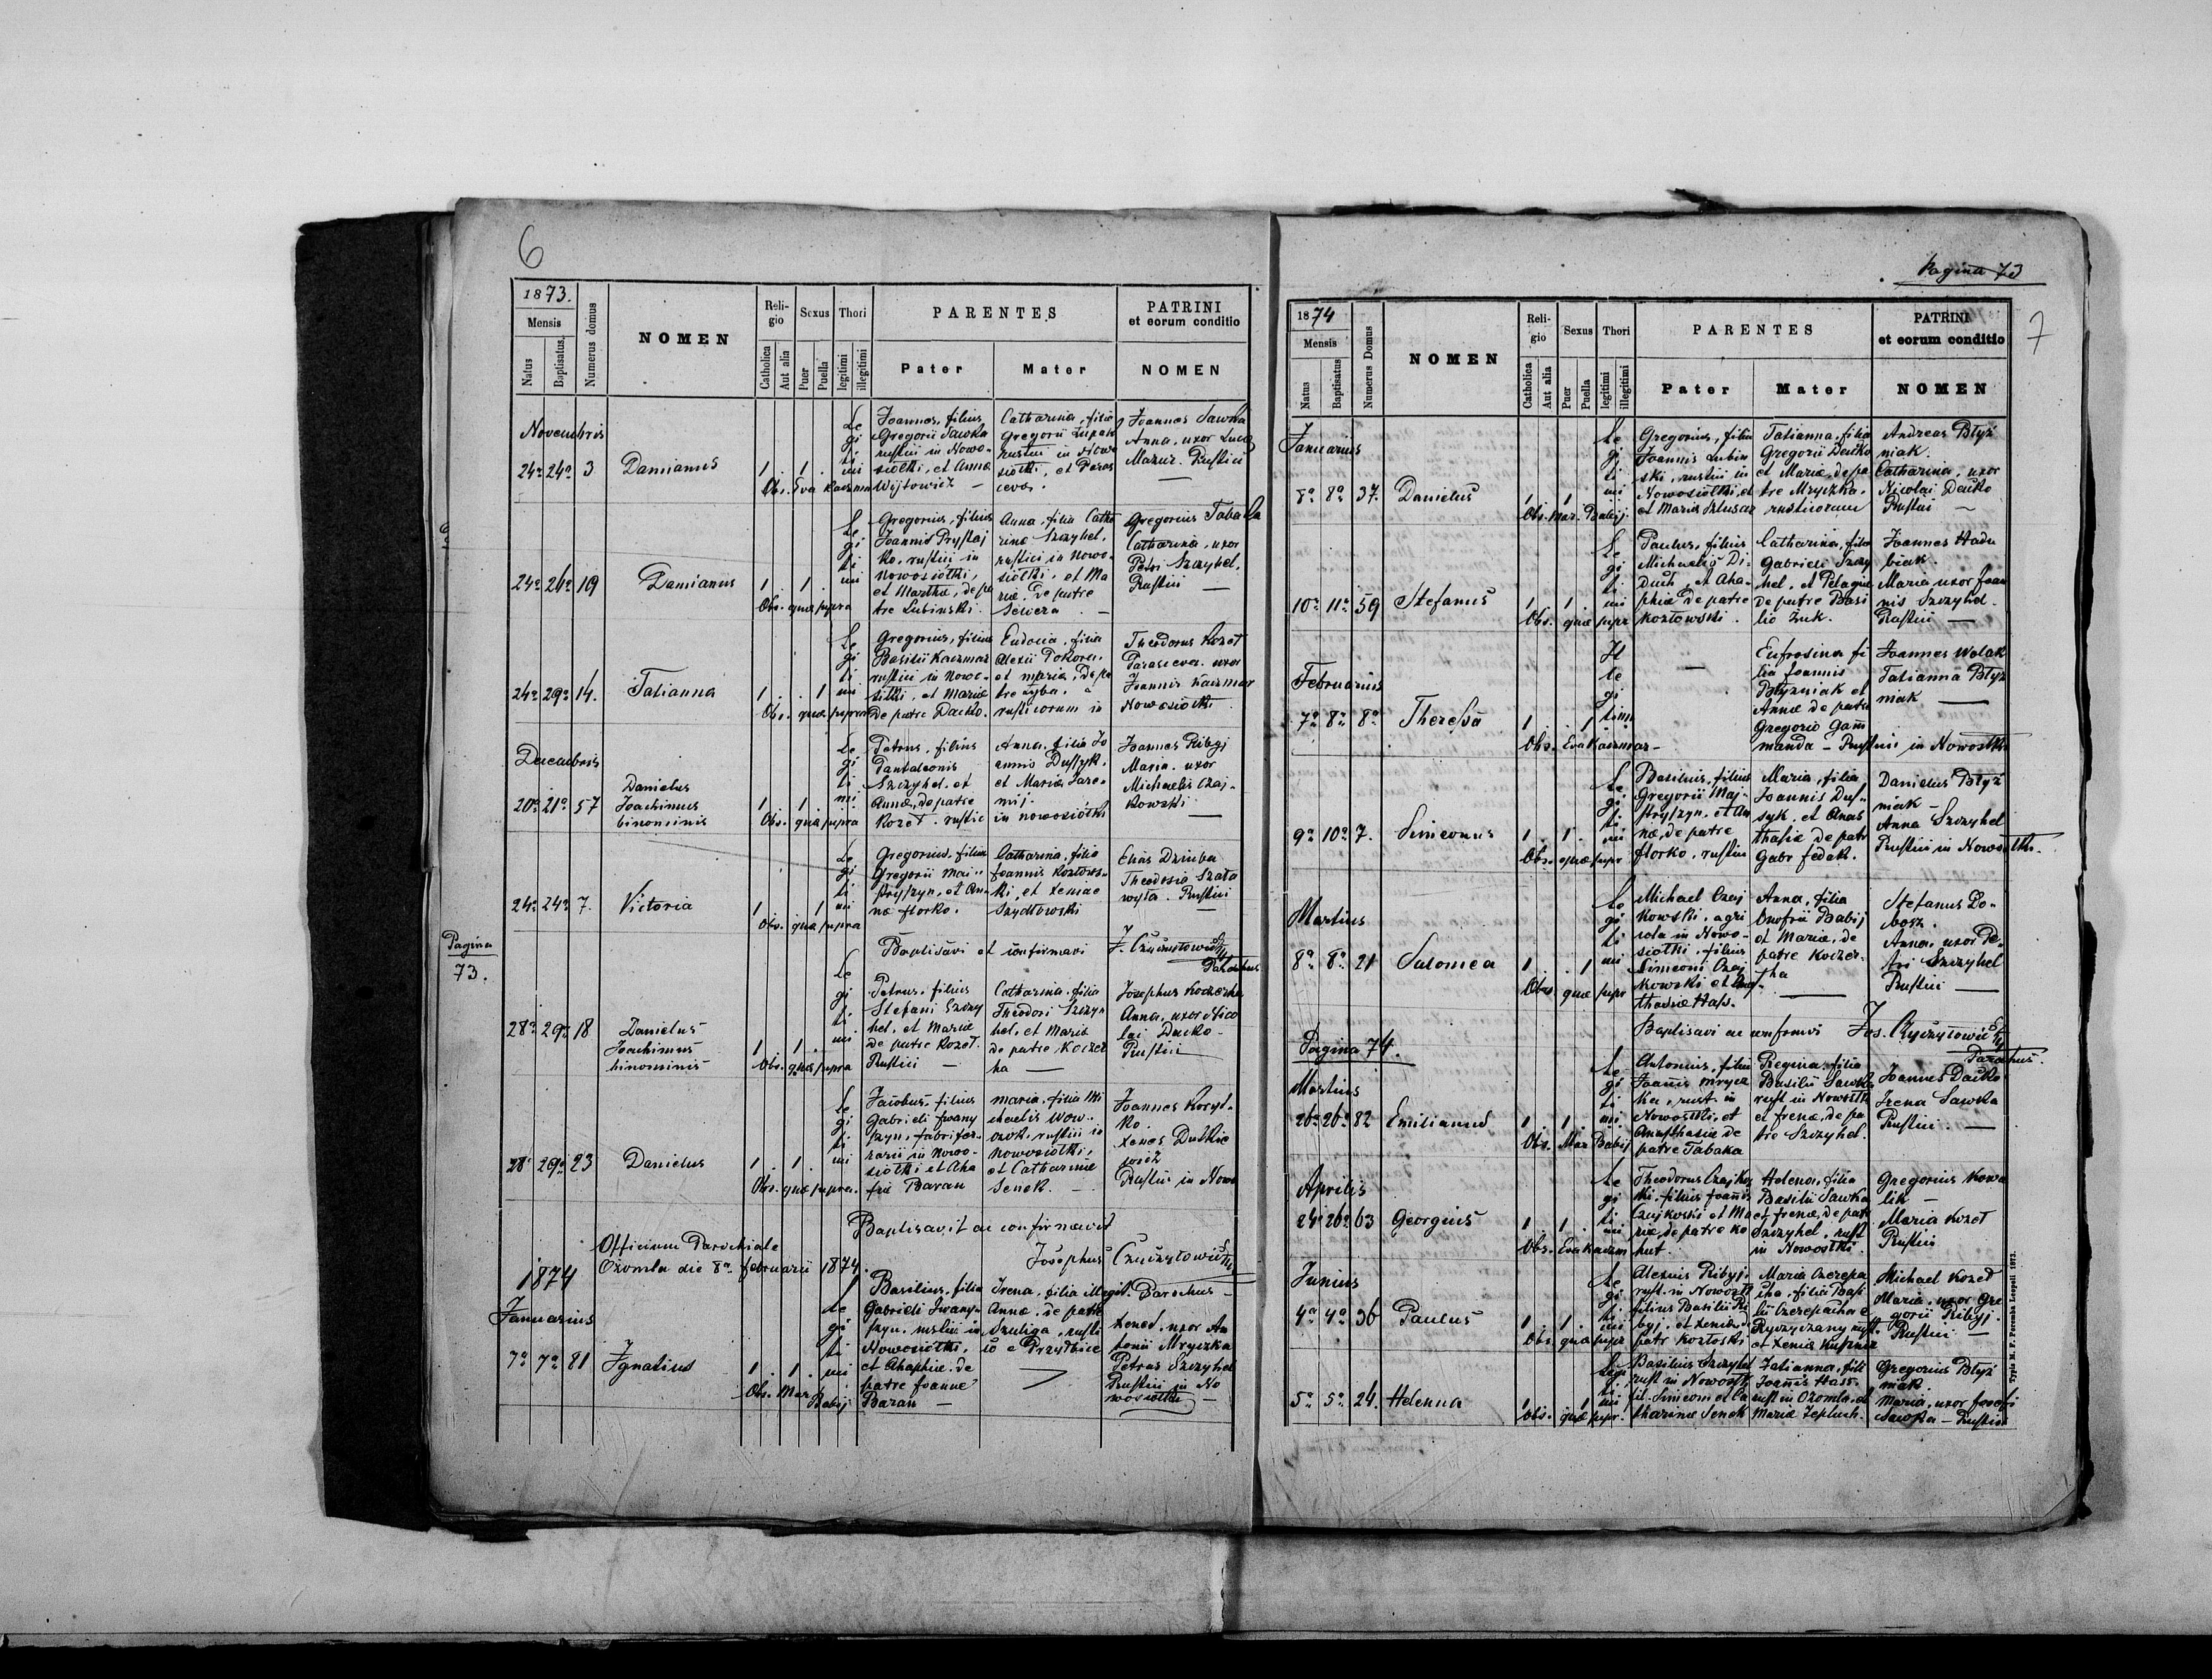 6
1873.
Mensis
Natus
Baptisatus
Numerus domus
NOMEN
Reli-
gio
Catholica
Aut alia
Sexus
Puer
Puella
Thori
legitimi
illegitimi
PARENTES
Pater
Mater
PATRINI
et eorum conditio
NOMEN
Novembris
24a 24a 3 Damianus
1 . 1 .
Obs. Eva Kaczmar
Le
gi
ti
mi
Joannes, filius
Gregorii Sawka
rustici in Nowo-
siolki, et Annæ
Wojtowicz –
Catharina, filia
Gregorii
rustici in Nowo
siolki, et Paras
cevæ.
Joannes Sawka
Anna, uxor Lucæ
Mazur. Rustici
24a 26a 19 Damianus
1 . 1 .
Obs. quæ supra
Le
gi
ti
mi
Gregorius, filius
Joannis Prystaj
ko, rustici in
Nowosiołki,
et Marthæ, de pa
tre Lubinski.
Anna, filia Catha
rinæ Szczyhel,
rustici in Nowo-
siołki, et Ma
riæ, de patre
Sewera. –
Gregorius Tabaka
Catharina, uxor
Petri Szczyhel.
Rustici –
24a 29a 14. Tatianna
1 . . 1
Obs. quæ supra
Le
gi
ti
mi
Gregorius, filius
Basilii Kaczmar
rustici in Nowo-
siłki, et Mariæ
de patre Dacko.
Eudocia, filia
Alexii Pokora,
et Mariæ, de pa
tre Zyba.
rusticorum in
Theodorus Kozoł
Parasceva uxor
Joannis Kaczmar
Nowosiołki
Decembris
20a 21a 57
Danielus
Joachimus
binominis
1 . 1 .
Obs. quæ supra
Le
gi
ti
mi
Petrus, filius
Pantaleonis
Szczyhel, et
Annæ, de patre
Kozoł. rustic
Anna, filia Jo
annis Duszyk,
et Mariæ Jare-
mij.
in nowosiółki
Joannes Ribyj
Maria, uxor
Michaelis Czaj-
kowski
24a 24a 7. Victoria
1 . . 1
Obs. quæ supra
Le
gi
ti
mi
Gregorius, filius
Gregorii Maj-
stryszyn, et An-
næ florko.
Catharina, filia
Joannis Kozłows-
ki, et Xeniae
Szydłowski
Elias Dziuba
Theodosia Szała
wyła. Rustici
Baptisavi et confirmavi
Parochus
Pagina
73.
28a 29a 18
Danielus
Joachimus
binominis
1 . 1 .
Obs. quæ supra
Le
gi
ti
mi
Petrus, filius
Stefani Szczy
hel, et Mariæ
de patre Kozoł.
Rustici –
Catharina, filia
Theodori Szczy
hel, et Mariæ
de patre Koczer
ha –
Josephus Koczerha
Anna, uxor Nico
lai Dacko –
Rustici
28a 29a 23 Danielus
1 . 1 .
Obs. quæ supra.
Le
gi
ti
mi
Jacobus, filius
Gabrieli Iwany
szyn, fabri fer-
rarii in Nowo-
siółki et Aha
fiæ Baran
Maria, filia Mi
chaelis Wow-
czok, rustici in
Nowosiółki,
et Catharinæ
Senek. –
Joannes Koryt-
ko.
Xenes Dutkie
wicz
Rustici in Nowo
Baptisavit ac confirmavit
Officium Parochiale
Ożomla die 8a februarii 1874.
Josephus
Parochus
1874
Januarius
7a 7a 81 Ignatius
1 . 1 .
Obs. Mar
Babij
Le
gi
ti
mi
Basilius, filius
Gabrieli Iwany-
szyn, rustici in
Nowosiółki,
et Ahaphiæ, de
patre Joanne
Baran –
Irena, filia illegit.
Annæ, de patre
Szuliga, rusti
co e Przyłbice
Xenes, uxor An
tonii Mryczka
Petrus Szczyhel
Rustici in No
wosiółki –
Pagina 73
7
1874
Mensis
Natus
Baptisatus
Numerus Domus
NOMEN
Reli-
gio
Catholica
Aut alia
Sexus
Puer
Puella
Thori
legitimi
illegitimi
PARENTES
Pater
Mater
PATRINI
et eorum conditio
NOMEN
Januarius
8a 8a 37. Danielus
1 . 1 .
Obs. Mar. Babij.
Le
gi
ti
mi
Gregorius, filiu
Joannis Lubin
ski, rustici in
Nowosiółki, et
et Mariæ Szlusar
Tatianna, filia
Gregorii Dacko
et Mariæ, de pa
tre Mryczka.
rusticorum
Andreas Błyż
niak.
Catharina, uxor
Nicolai Dacko
Rustici –
10a 11a 59 Stefanus
1 . 1 .
Obs. quæ supr
Le
gi
ti
mi
Paulus, filius
Michaelis Di-
duch, et Aha-
phiæ de patre
Kozłowski.
Catharina, filia
Gabrieli Szczy
hel, et Pelagiæ
de patre Basi
lio Żuk.
Joannes Hadu
biak.
Maria uxor Joan
nis Szczyhel.
Rustici –
Februarius
7a 8a 8a Theressa
1 . . 1
Obs. Eva Kaczmar –
Il
le
gi
timi
–
Eufrosina fi
lia Joannis
Błyzniak et
Annæ de patre
Gregorio Gam
manda – Rustici in Nowosiółki
Joannes Wolak
Tatianna Błyż
niak –
9a 10a 7. Simeonus
1 . 1 .
Obs. quæ supr
Le
gi
ti
mi
Basilius, filius
Gregorii Maj-
stryszyn, et An
næ, de patre
florko, rustici
Maria, filia
Joannis Dus-
syk, et Anas
thasiæ de patr
Gabr fedak.
Danielus Błyż
niak –
Anna Szczyhel
Rustici in Nowosiółki.
Martius
8a 8a 21 Salomea
1 . . 1
Obs quæ supr
Le
gi
ti
mi
Michael Czaj
kowski, agri
cola in Nowo-
siółki, filius
Simeoni Czaj
kowski et Anas-
thasiæ Hass.
Anna, filia
Onofrii Babij
et Mariæ, de
patre Koczer-
ha
Stefanus Do-
bosz.
Anna, uxor Pe-
tri Szczyhel
Rustici –
Baptisavi ac confirmavi Jos.
Parochus.
Pagina 74.
Martius
26a 26a 82 Emilianus
1 . 1 .
Obs. Mar Babij
Le
gi
ti
mi
Antonius, filius
Joannis Mrycz
ka, rust. in
Nowosiółki, et
Anasthasiæ de
patre Tabaka
Regina, filia
Basilii Sawka
rust in Nowosiółk
et Irenæ, de pa
tre Szczyhel.
Joannes Dacko
Irena Sawka
Rustici –
Aprilis
24a 26a 63 Georgius
1 . 1 .
Obs. Eva Kaczm
Le
gi
ti
mi
Theodorus Czajkow
ski, filius Joannis
Czajkoski et Ma
riæ, de patre Ko
hut.
Helena, filia
Basilii Sawka
et Irenæ, de patr
Szczyhel, rust
in Nowosiółki.
Gregorius Kowa
lik –
Maria Kozoł
Rustici
Junius
4a 4a 36 Paulus
1 . 1 .
Obs. quæ supr
Le
gi
ti
mi
Alexius Ribyj.
rust. in Nowosiółk
filius Basilii Ri
byj, et Xeniæ, de
patr Kozłoski
Maria Czerepa
cha, filia Basi
lii Czerepacha e
Ryczyczany rust.
et Xeniæ Kuszner
Michael Kozoł
Maria, uxor Gre
gorii Ribyj.
Rustici –
5a 5a 24. Helenna
1 . . 1
Obs. quæ supr.
Legi
ti
mi
Basilius Szczyhel
rust in Nowosiółk
fil. Simeoni et Ca
tharinæ Senek
Tatianna, fili
Joannis Hass
rust in Ożomla, et
Mariæ Tepluch.
Gregorius Błyż
niak.
Maria, uxor Josefi
Sawka – Rustici
Typis M. F. Poremba Leopoli 1873.